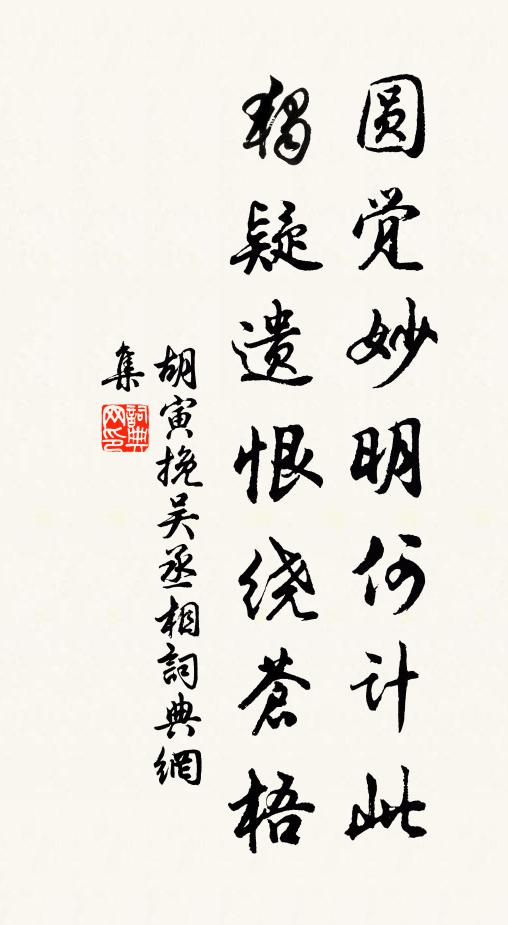 圆觉妙明何计此
独疑遗恨绕苍梧
胡寅挽吴丞相詞典網
集
詞典
网印